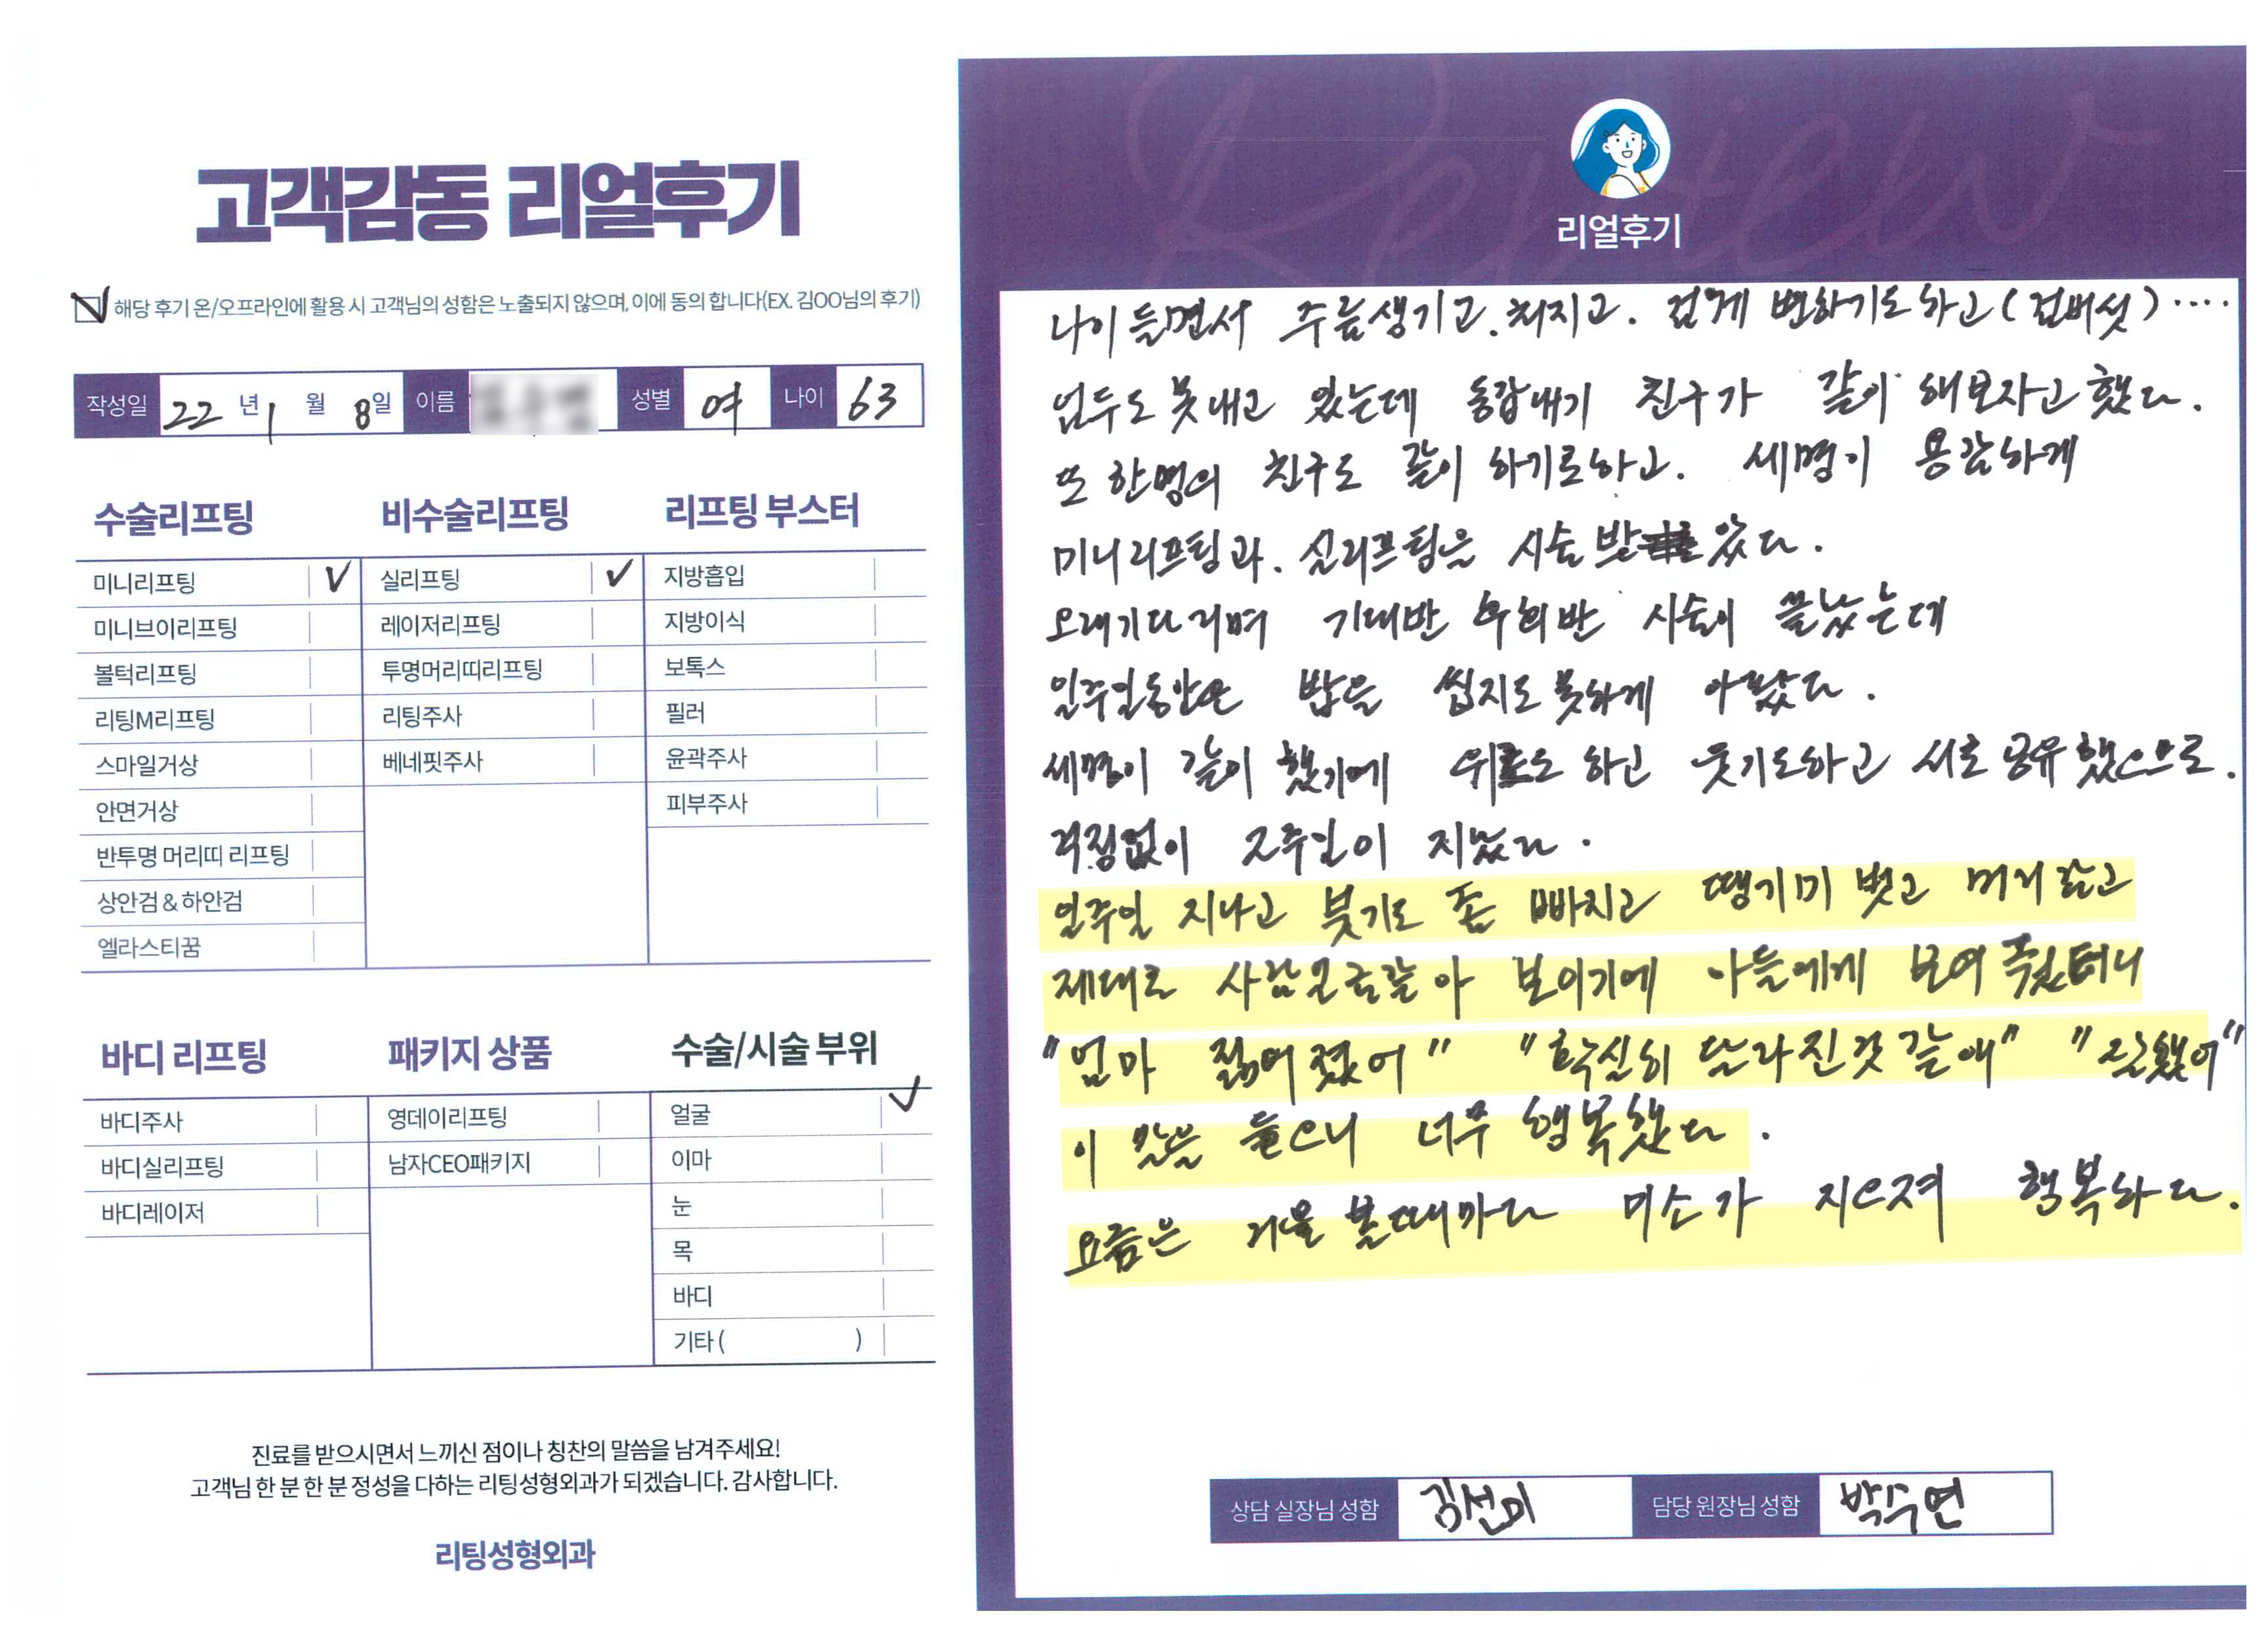 고객감동 리얼후기
해당 후기 온/오프라인에 활용 시 고객님의 성함은 노출되지 않으며, 이에 동의 합니다(EX. 김OO님의 후기)
작성일 22 년 1 월 8일 이름 성별 여 나이 63
수술리프팅
미니리프팅 V
미니브이리프팅
볼턱리프팅
리팅M리프팅
스마일거상
안면거상
반투명 머리띠 리프팅
상안검 & 하안검
엘라스티꿈
비수술리프팅
실리프팅 ✓
레이저리프팅
투명머리띠리프팅
리팅주사
베네핏주사
리프팅 부스터
지방흡입
지방이식
보톡스
필러
윤곽주사
피부주사
바디 리프팅
바디주사
바디실리프팅
바디레이저
패키지 상품
영데이리프팅
남자CEO패키지
수술/시술 부위
얼굴 ✓
이마
눈
목
바디
기타 ( )
진료를 받으시면서 느끼신 점이나 칭찬의 말씀을 남겨주세요!
고객님 한 분 한 분 정성을 다하는 리팅성형외과가 되겠습니다. 감사합니다.
리팅성형외과
Review
리얼후기
나이 들면서 주름생기고. 처지고. 검게 변하기도하고 (검버섯) ····
엄두도 못내고 있는데 동갑내기 친구가 같이 해보자고 했다.
또 한명의 친구도 같이 하기로하고. 세명이 용감하게
미니리프팅과. 실리프팅을 시술 받았다.
오래기다리며 기대반 후회반 시술이 끝났는데
일주일동안은 밥을 씹지도 못하게 아팠다.
세명이 같이 했기에 위로도 하고 웃기도하고 서로 공유했으므로.
걱정없이 2주일이 지났다.
일주일 지나고 붓기도 좀 빠지고 땡기미 벗고 머리감고
제대로 사람모습같아 보이기에 아들에게 보여 줬더니
"엄마 젊어졌어" "확실히 달라진것 같애" "잘했어"
이 말을 들으니 너무 행복했다.
요즘은 거울 볼때마다 미소가 지으져 행복하다.
상담 실장님 성함 김선미 담당 원장님 성함 박수연